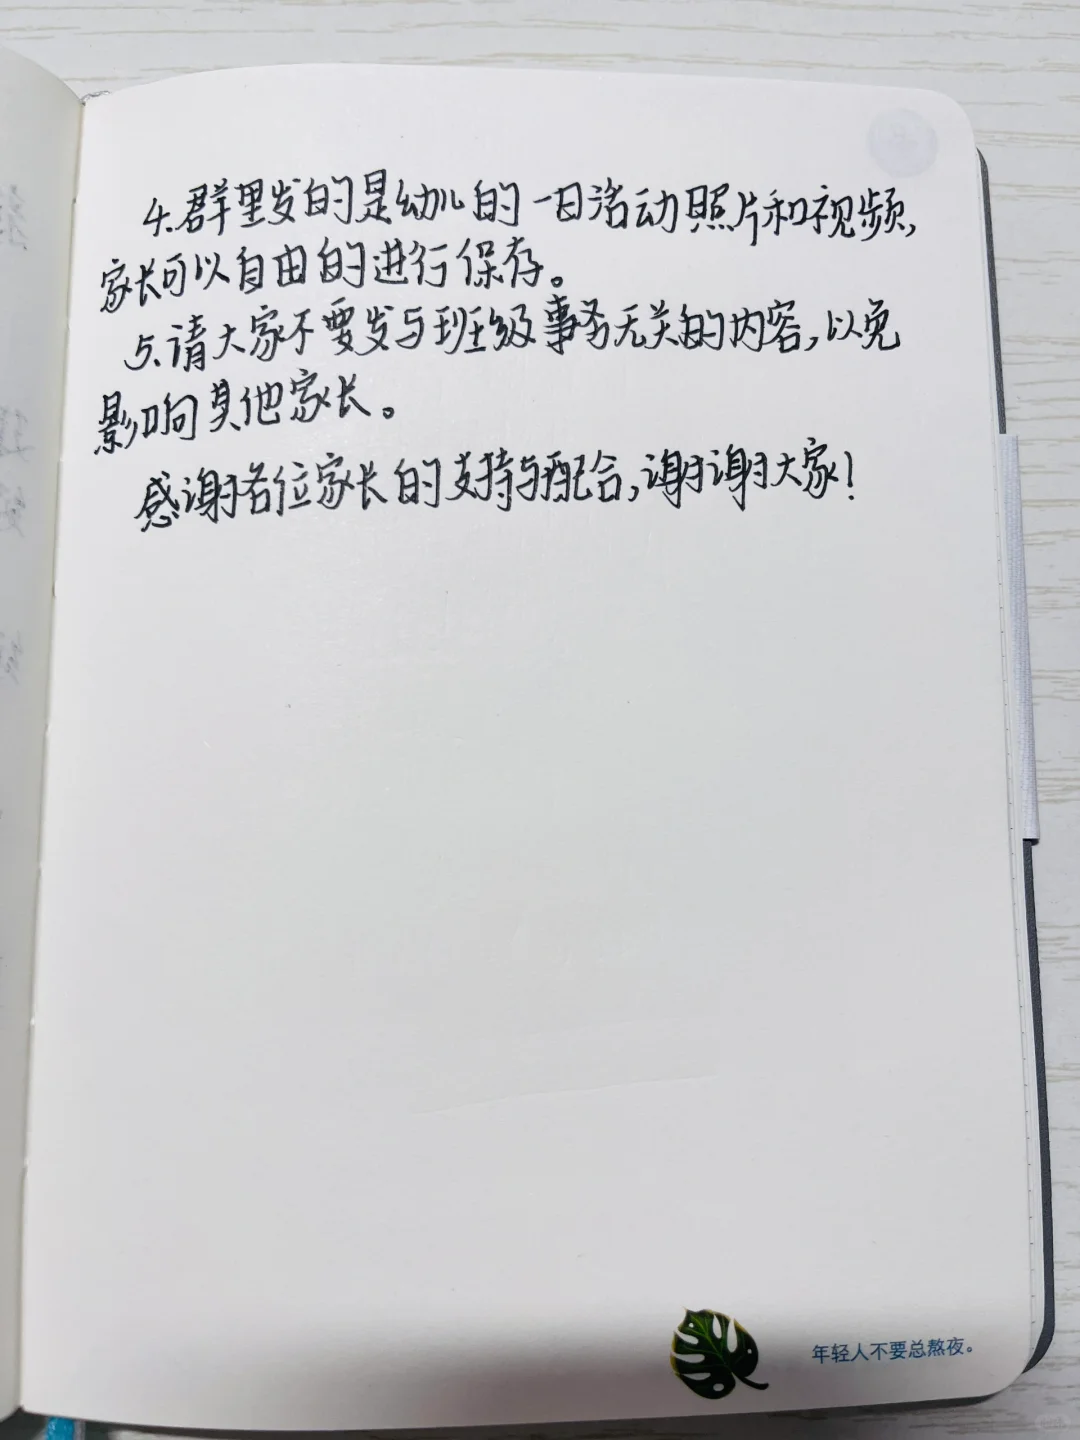 4.群里发的是幼儿的一日活动照片和视频,
家长可以自由的进行保存。
5.请大家不要发与班级事务无关的内容,以免
影响其他家长。
感谢各位家长的支持与配合,谢谢大家!
年轻人不要总熬夜。